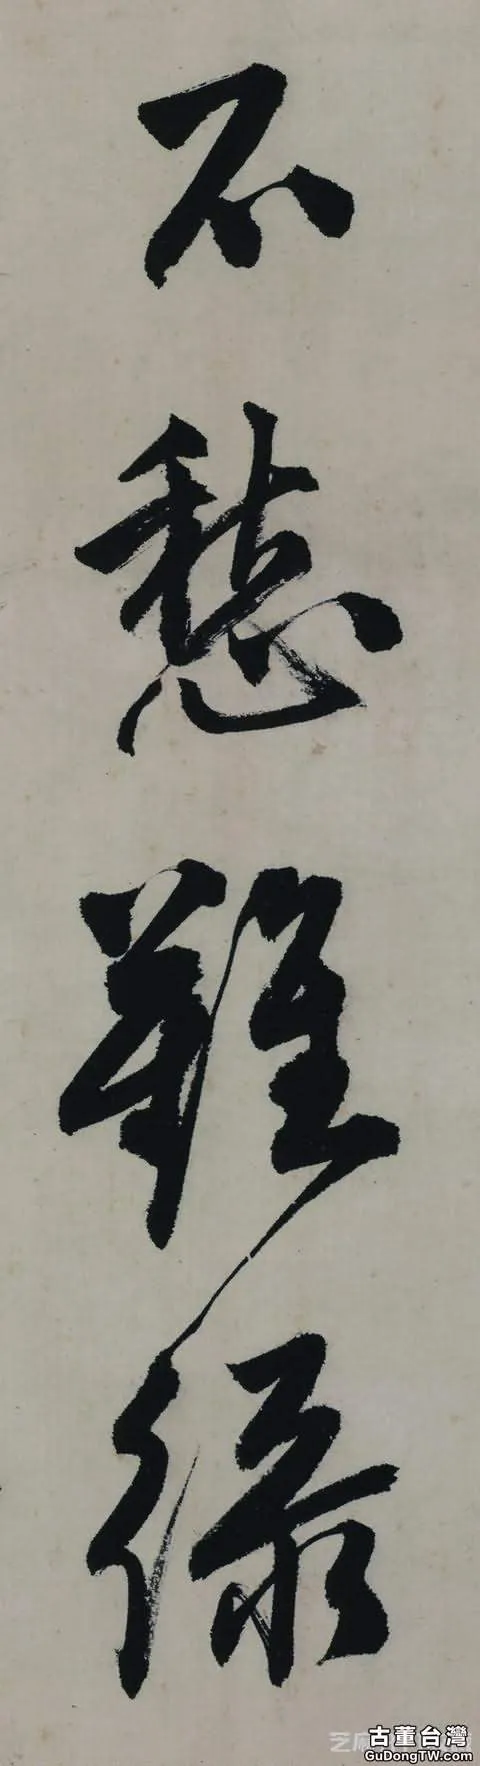 不
愁
難
綠
古董台灣
GuDongTW.com